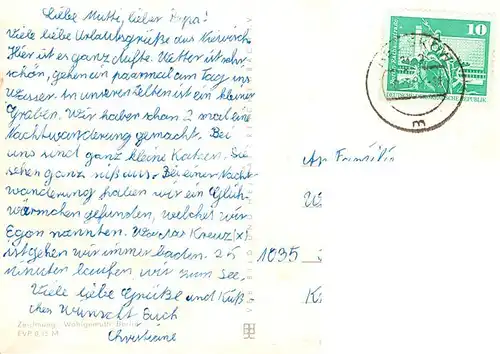 Liebe Mutti, lieber Papa!
Viele liebe Urlaubsgrüße aus
Hier ist es ganz dufte. Wetter ist sehr
schön, gehen ein paarmal am Tag ins
Wasser. In unseren Zelten ist ein kleiner
Graben. Wir haben schon 2 mal eine
Nachtwanderung gemacht. Bei
uns sind ganz kleine Katzen. Sie
sehen ganz süß aus. Bei einer Nacht-
wanderung haben wir ein Glüh-
würmchen gefunden, welches wir
Egon nannten. Wo das Kreuz (x)
ist gehen wir immer baden. 25
minuten laufen wir zum See.
Viele liebe Grüße und Küß-
chen wünscht Euch
Christiane
Zeichnung: Wohlgemuth, Berlin
EVP 0,12 M
10
An Familie
1035